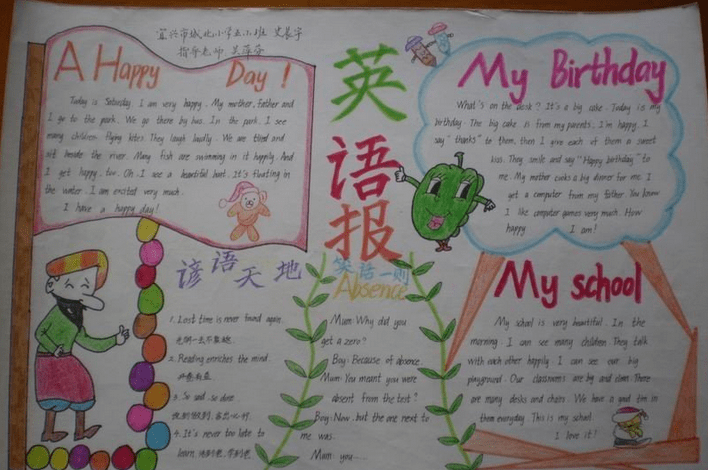 宜兴市城北小学五
指导老师
A Happy Day!
Today is Saturday. I am very happy. My mother, father and
I go to the park. We go there by bus. In the park. I see
many children flying kites. They laugh loudly. We are tired and
sit beside the river. Many fish are swimming in it happily. And
I get happy, too. Oh. I see a beautiful boat. It's floating in
the water. I am excited very much.
I have a happy day!
英
语
报
My Birthday
What's on the desk? It's a big cake. Today is my
birthday. The big cake is from my parents. I'm happy. I
say "thanks" to them, then I give each of them a sweet
kiss. They smile and say "Happy birthday" to
me. My mother cooks a big dinner for me. I
get a computer from my father. You know
I like computer games very much. How
happy I am!
谚语天地
1. Lost time is never found again.
2. Reading enriches the mind.
开卷有益
3. So said, so done
4. It's never too late to
learn.
笑话一则
Absence
Mum: Why did you
get a zero?
Boy: Because of absence.
Mum: You meant you were
absent from the test?
Boy: Now. but the one next to
me was.
Mum: you....
My school
My school is very beautiful. In the
morning. I can see many children. They talk
with each other happily. I can see our big
playground. Our classrooms are big and clean. There
are many desks and chairs. We have a good time in
them everyday. This is my school.
I love it!